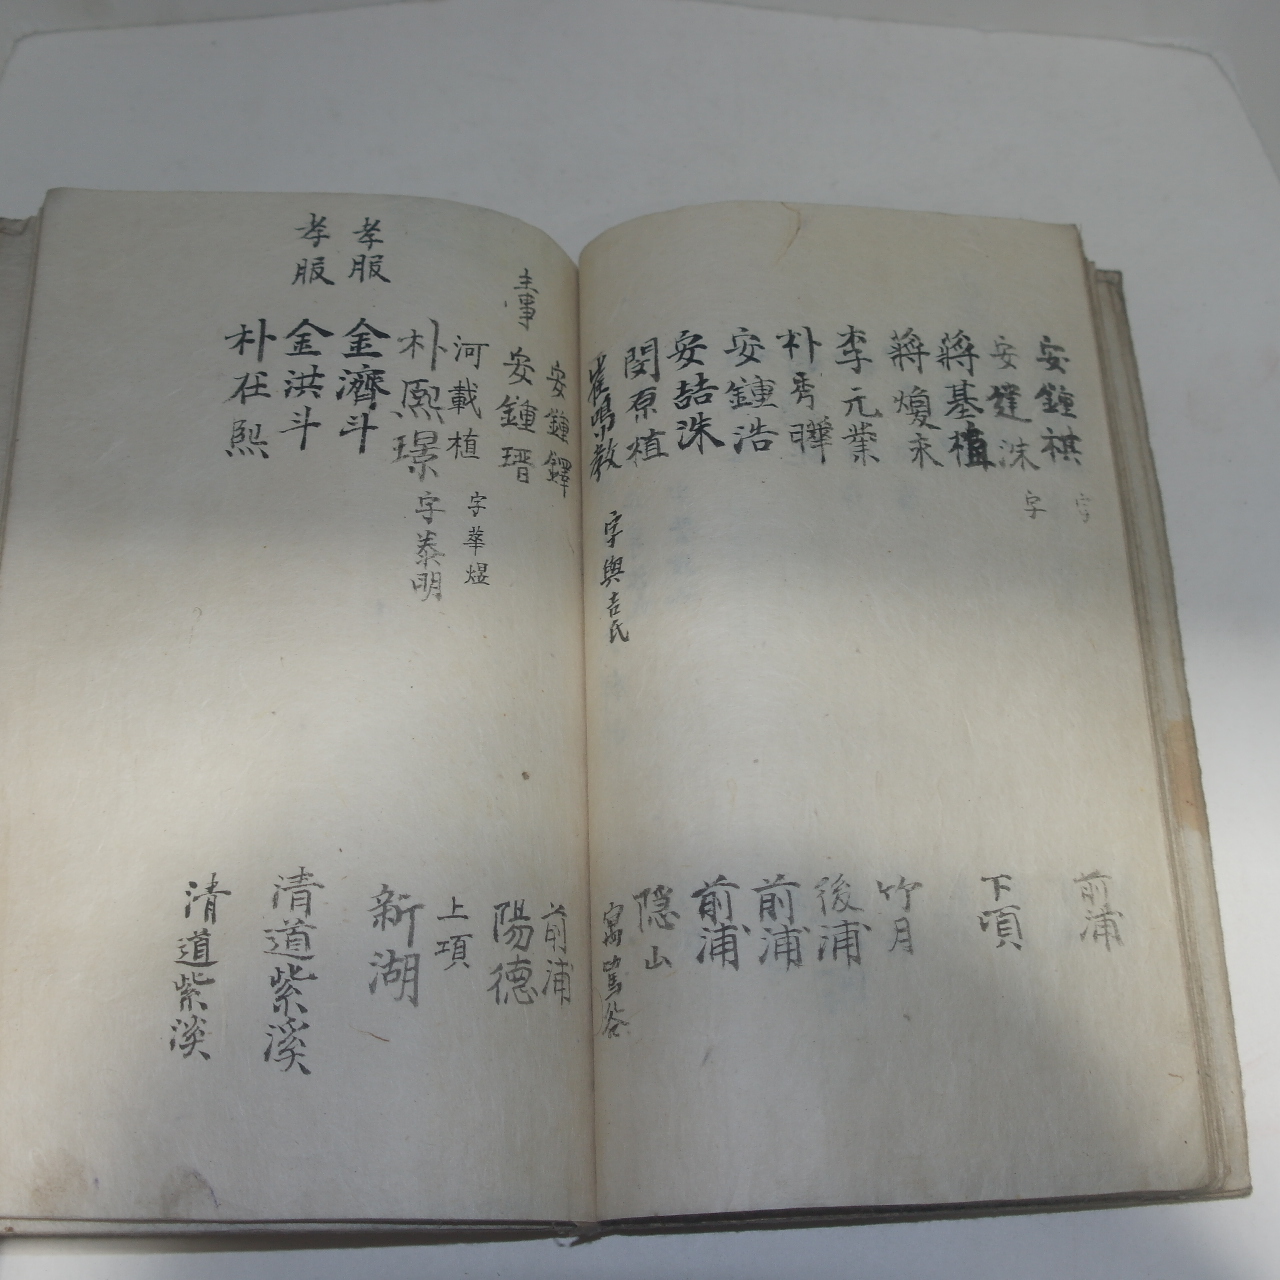 安鍾祺 字 前浦
安鍵洙 字 下項
蔣基植
蔣煥永 竹月
李元業 後浦
朴秀曄 前浦
安鍾浩 前浦
安喆洙 隱山
閔原植
崔鳴敎 字興吉氏 寓 谷
安鍾鐸 前浦
主事 安鍾瑨 陽德
河載植 字華煜 上項
朴熙璟 字泰明 新湖
孝服 金濟斗 清道紫溪
孝服 金洪斗 清道紫溪
朴在熙